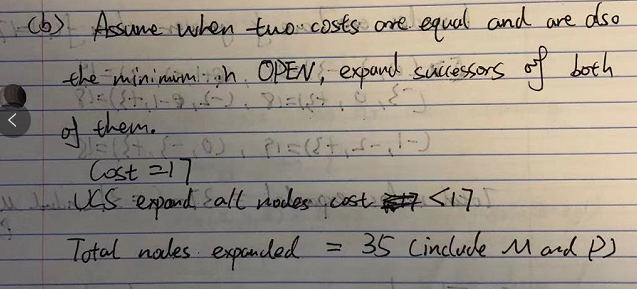 (b) Assume when two costs are equal and are also
the minimum in OPEN, expand successors of both
of them.
Cost = 17
UCS expand all nodes cost < 17
Total nodes expanded = 35 (include M and P)